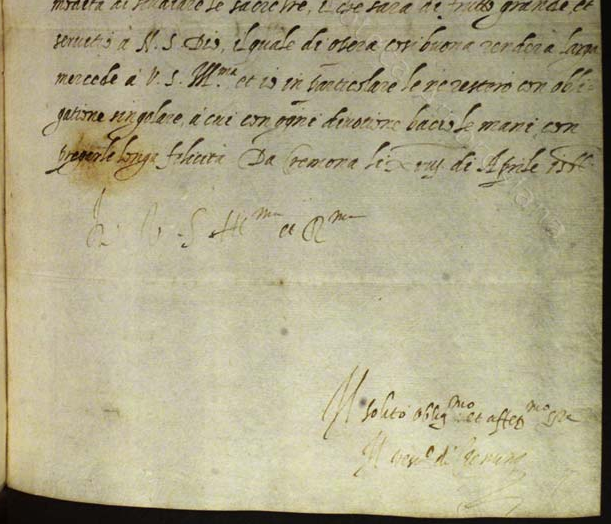 modità di studiare le sacre lre, il che sarà di frutto grande, et
servitio à N. S. Dio, il quale di opera così buona renderà larga
mercede à V. S. Ill.ma et io in particolare le ne resterò con obli-
gatione singolare, à cui con ogni divotione bacio le mani, con
pregarle longa felicità Da Cremona li di Aprile
Di V. S. Ill.ma et R.ma
Il solito oblig.mo et affet.mo
Il vesc.o di Cremona